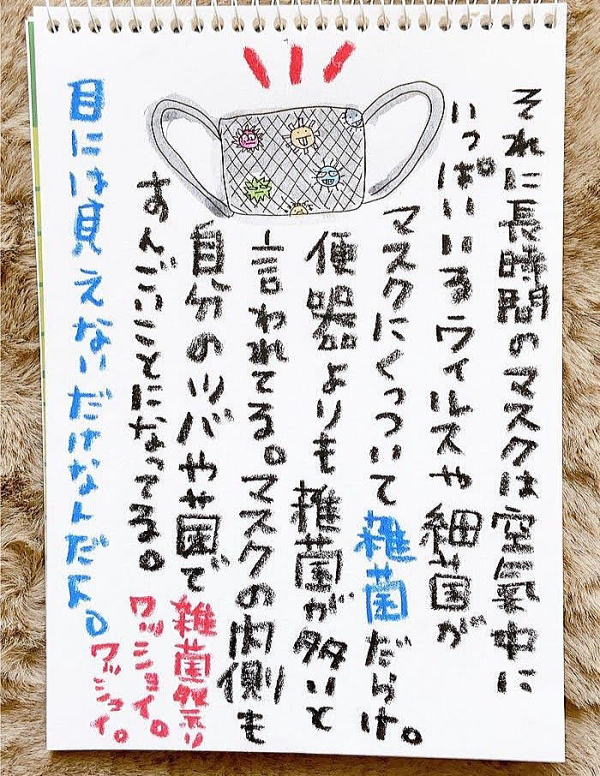 それに長時間のマスクは空氣中に
いっぱいいるウィルスや細菌が
マスクにくっついて雑菌だらけ。
便器よりも雑菌が多いと
言われてる。マスクの内側も
自分のツバや菌で雑菌祭り
すんごいことになってる。ワッショイ。
ワッショイ。
目には見えないだけなんだよ。